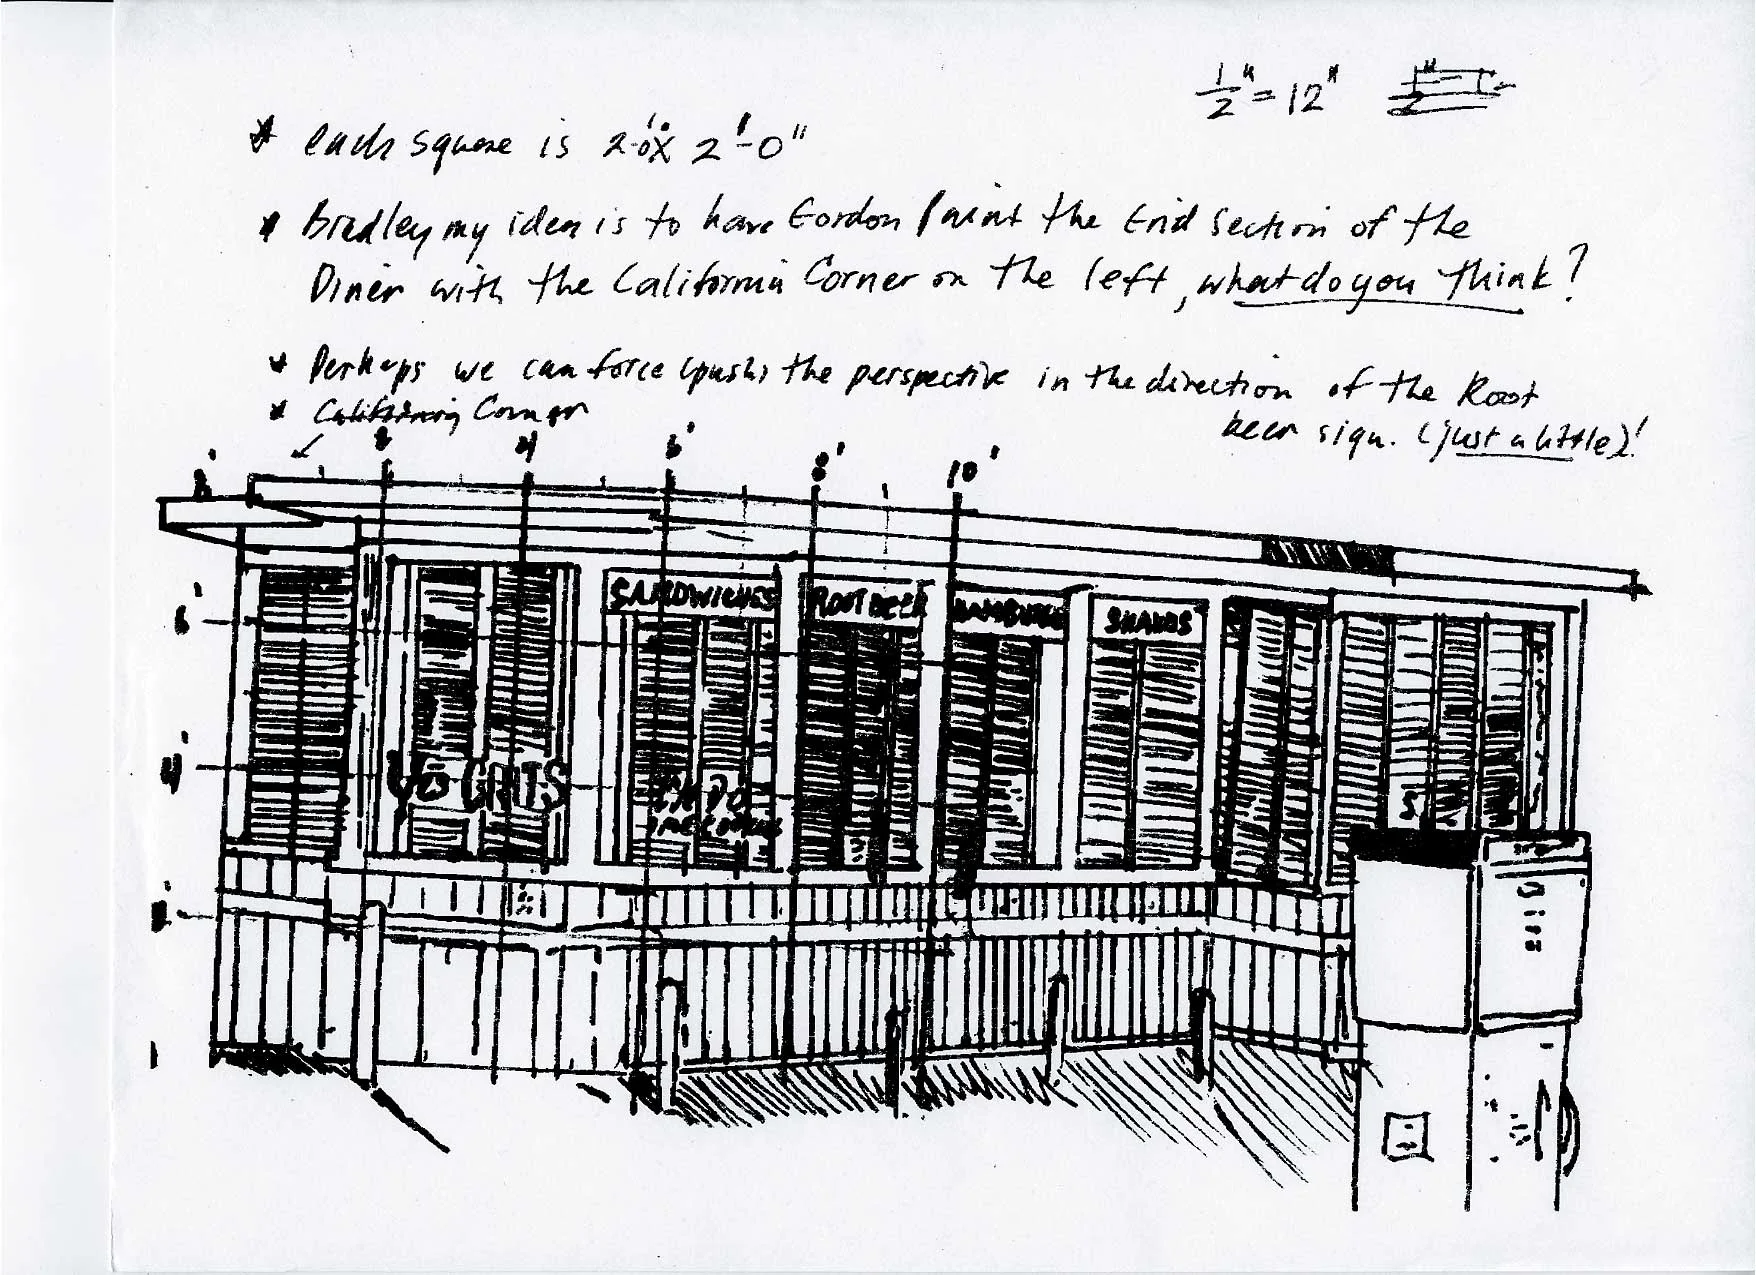 1/2" = 12"
* each square is 2'-0" X 2'-0"
* Bradley my idea is to have Gordon Paint the End Section of the
Diner with the California Corner on the left, what do you think?
* Perhaps we can force (push) the perspective in the direction of the Root
beer sign. (just a little)!
* California Corner
2 4 6' 8' 10'
8'
6'
4'
SANDWICHES ROOT BEER HAMBURG SHAKES